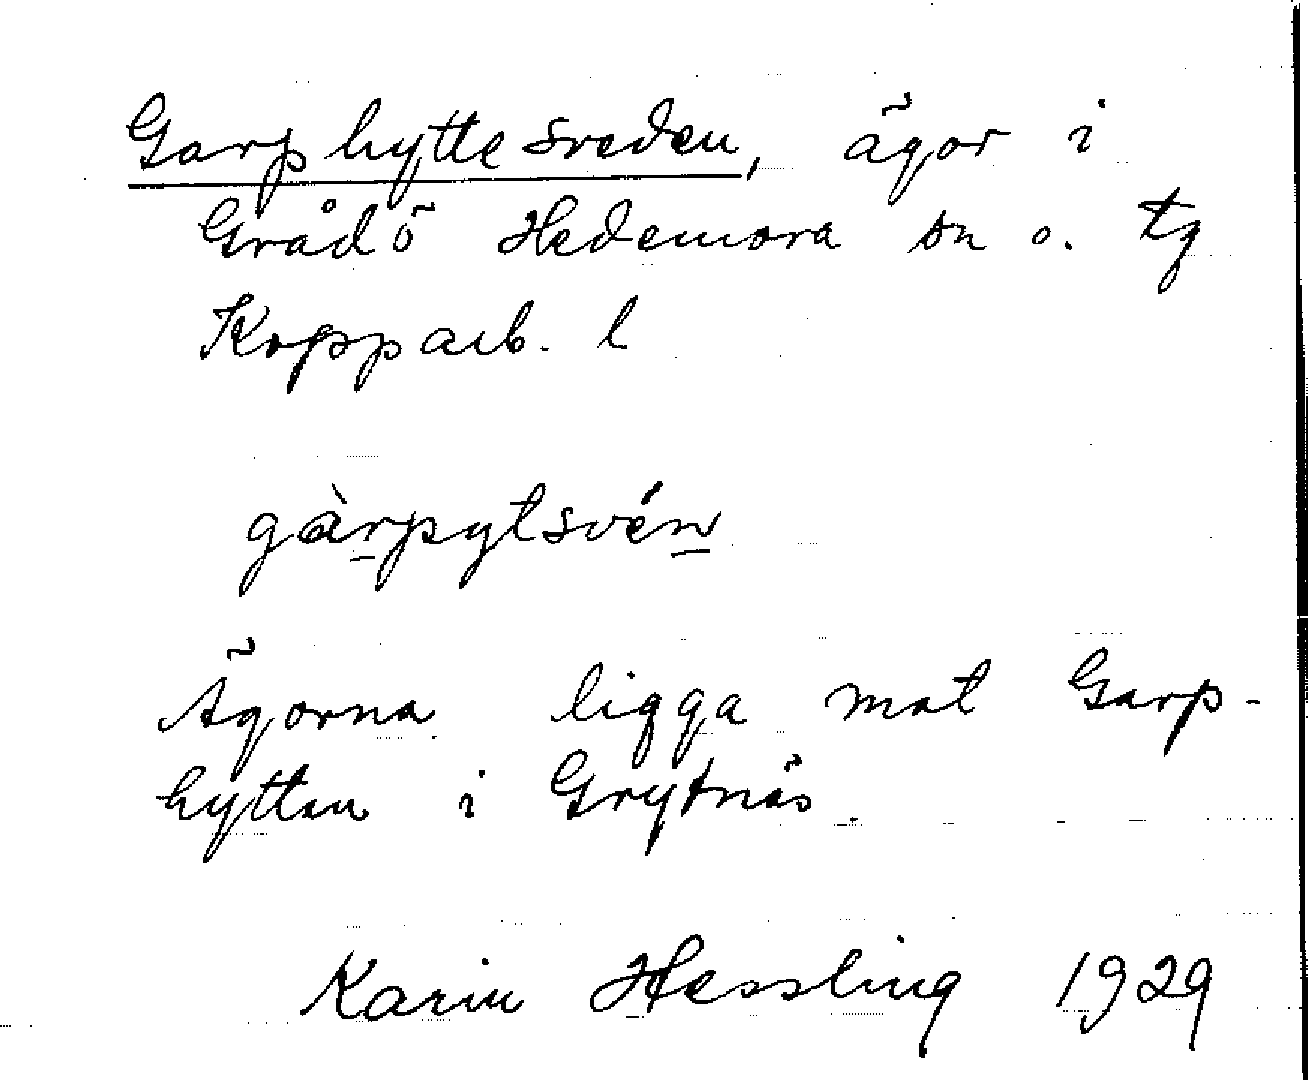 Garphyttesveden, ägor i
Grådö Hedemora sn o. tg
Kopparb. l
gàrpytsvén
Ägorna ligga mot Garp-
hyttan i Grytnäs.
Karin Hessling 1929